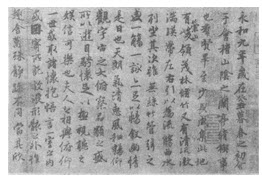 永和九年歲在癸丑暮春之初會
于會稽山陰之蘭亭脩稧事
也群賢畢至少長咸集此地
有崇山峻領茂林脩竹又有清流激
湍暎帶左右引以為流觴曲水
列坐其次雖無絲竹管弦之
盛一觴一詠亦足以暢敘幽情
是日也天朗氣清惠風和暢仰
觀宇宙之大俯察品類之盛
所以遊目騁懷足以極視聽之
娛信可樂也夫人之相與俯仰
一世或取諸懷抱悟言一室之內
或因寄所託放浪形骸之外雖
趣舍萬殊靜躁不同當其欣